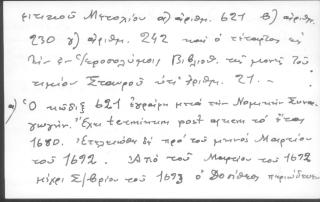 ριτικοῦ Μετοχίου α) ἀριθμ. 621 β) ἀριθμ.
230 γ) ἀριθμ. 242 καὶ ὁ τέταρτος εἰς
τὴν ἐν Ἱεροσολύμοις Βιβλιοθ. τῆς μονῆς τοῦ
τιμίου Σταυροῦ ὑπ' ἀριθμ. 21. –
α) Ὁ κῶδιξ 621 ἐγράφη μετὰ τὴν Νομικὴν Συνα-
γωγήν. Ἔχει terminum post quem τὸ ἔτος
1680. Ἐτελειώθη δὲ πρὸ τοῦ μηνὸς Μαρτίου
τοῦ 1692. Ἀπὸ τοῦ Μαρτίου τοῦ 1672
μέχρι Σ/βρίου τοῦ 1673 ὁ Δοσίθεος